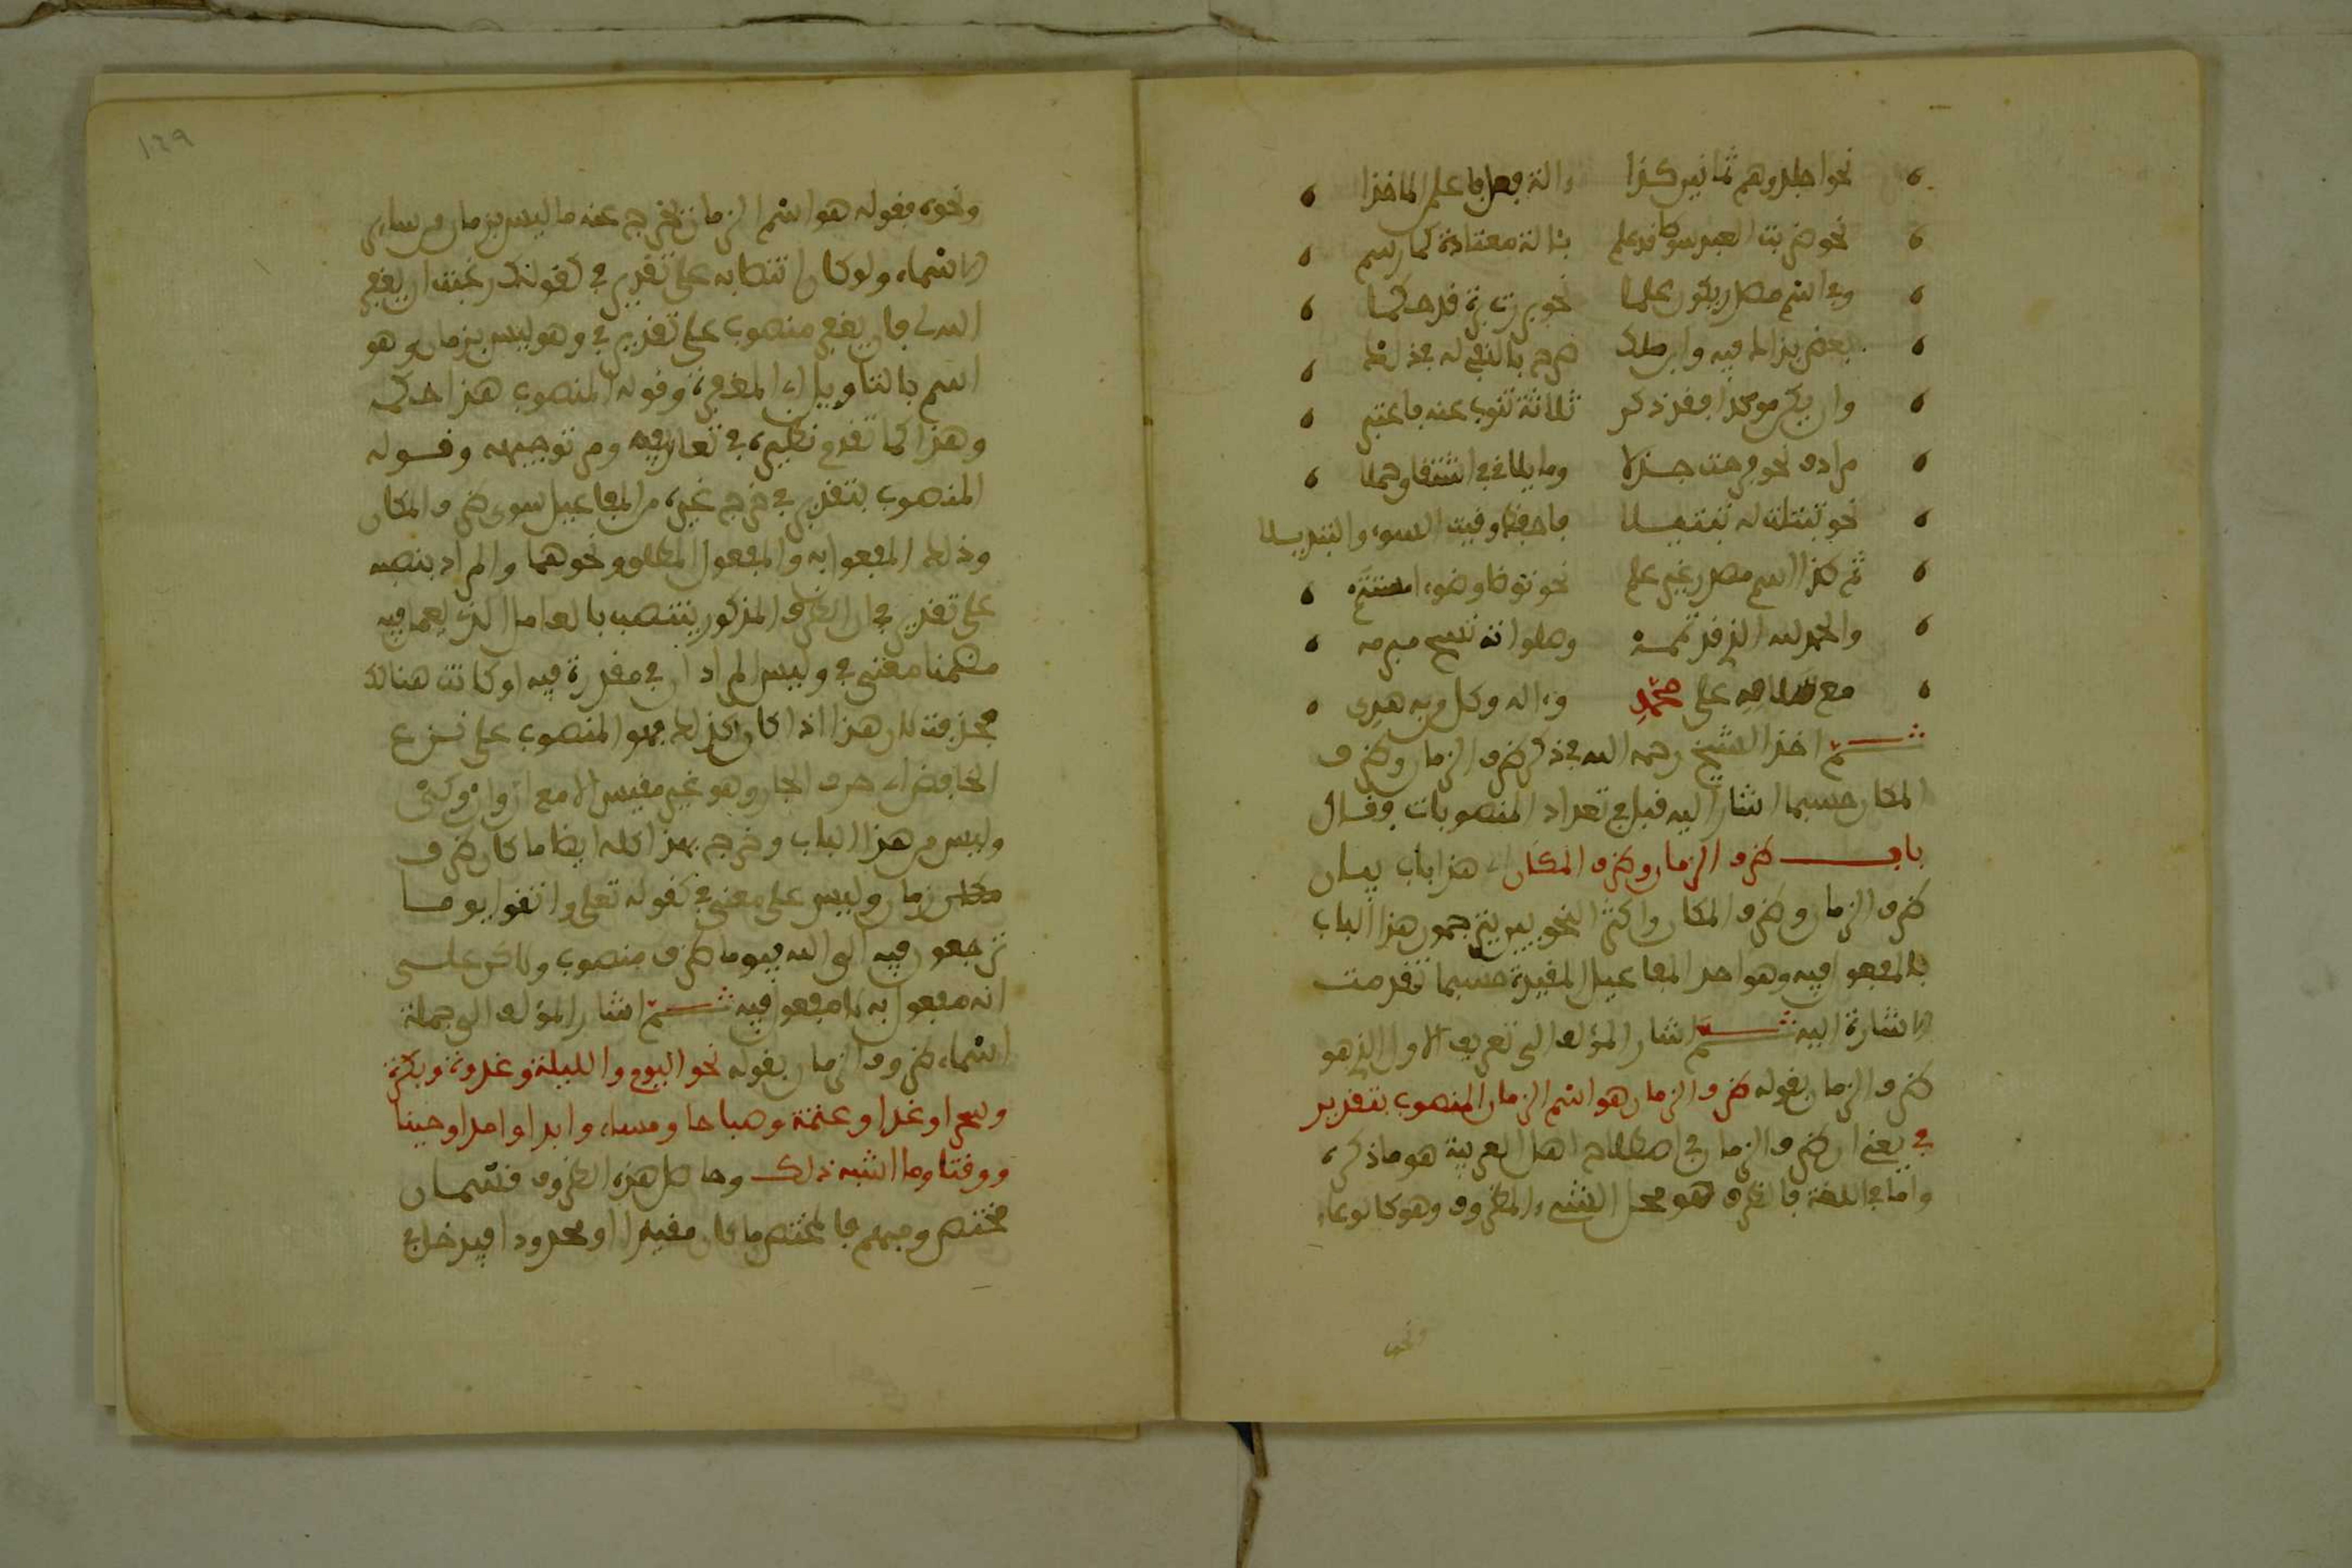 نحو اجلدوهم ثمانين كذا وآلة فعل فاعلم الماخذا
نحو ضربت العبد سوطا قد علم بآلة معتادة كما رسم
وفي اسم مصدر يكون علما نحو بررت برة قد حكما
وان يكن موكدا فقد ذكر ثلاثة تنوب عنه فاعتبر
مرادف نحو فرحت جذلا وما يلاقي في اشتقاق جملا
نحو تبتلت له تبتيلا فاحفظ وقيت السوء والتبديلا
ثم كذا اسم مصدر غير علم نحو توضا وضوءا
والحمد لله الذي قد تممه
مع صلاته على محمد وءاله وكل من به هدي
ثم اخذ الشيخ رحمه الله في ذكر ظرف الزمان وظرف
المكان حسبما اشار اليه قبل في تعداد المنصوبات فقال
باب ظرف الزمان وظرف المكان اي هذا باب بيان
ظرف الزمان وظرف المكان واكثر النحويين يترجمون هذا الباب
بالمفعول فيه وهو احد المفاعيل المقيدة حسبما تقدمت
الاشارة اليه ثم اشار المؤلف الى تعريف الاول الذي هو
ظرف الزمان بقوله ظرف الزمان هو اسم الزمان المنصوب بتقدير
في يعني ان ظرف الزمان في اصطلاح اهل العربية هو ما ذكره
واما في اللغة فالظرف هو محل الشيء المظروف وهو كالوعاء
ونحوه
١٦٩
ونحوه فقوله هو اسم الزمان يخرج عنه ما ليس بزمان من ساير
الاسماء ولو كان انتصابه على تقدير في كقولك رغبت ان يفعل
فان يفعل منصوب على تقدير في وهو ليس بزمان وهو
اسم بالتاويل وقوله المنصوب هذا حكمه
وهذا كما تقدم نظيره في تعاريفه ومر توجيهه وقوله
المنصوب بتقدير في خرج غيره من المفاعيل سوى ظرف المكان
وذلك المفعول به والمفعول المطلق ونحوهما والمراد بنصبه
على تقدير في ان الظرف المذكور ينتصب بالعامل الذي يعمل فيه
مضمنا معنى في وليس المراد ان في مقدرة فيه او كانت هنالك
فحذفت لان هذا اذا كان كذلك فهو المنصوب على نزع
الخافض اي حرف الجار وهو غير مقيس الا مع ان وان وكي
وليس من هذا الباب وخرج بهذا كله ايضا ما كان ظرف
زمان وليس على معنى في كقوله تعلى واتقوا يوما
ترجعون فيه الى الله فيوما ظرف منصوب ولاكن على
انه مفعول به لا مفعول فيه ثم اشار المؤلف الى جملة
اسماء ظروف الزمان بقوله نحو اليوم والليلة وغدوة وبكرة
وسحرا وغدا وعتمة وصباحا ومساء وابدا وامدا وحينا
ووقتا وما اشبه ذلك وحاصل هذه الظروف قسمان
مختص ومبهم فالمختص ما كان مقيدا او محدودا فيدخل في